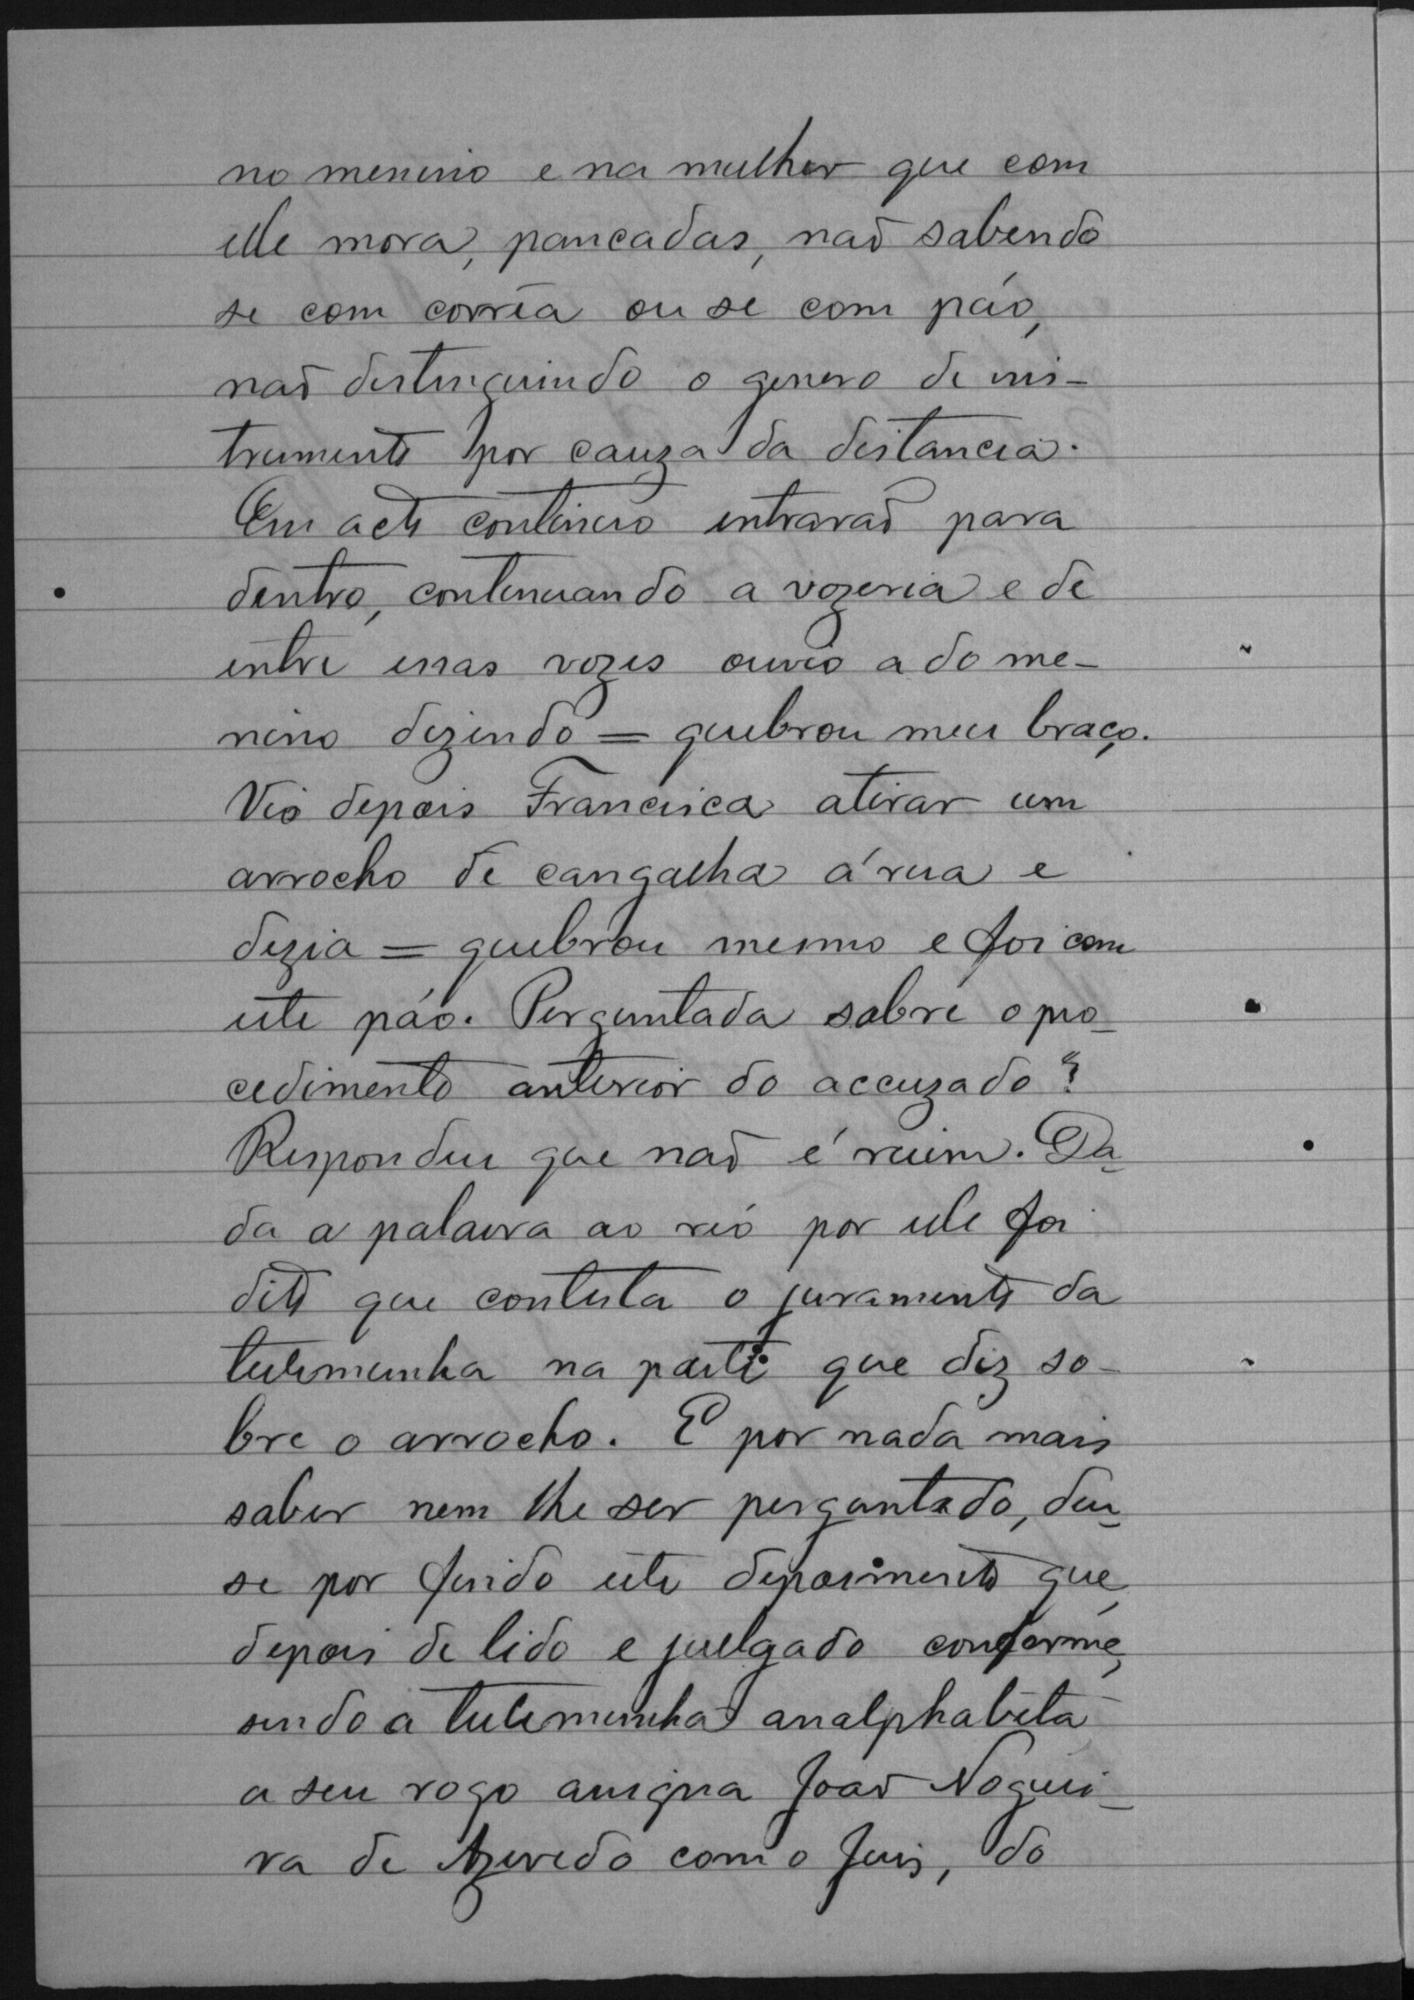 no menino e na mulher que com
elle mora, pancadas, naõ sabendo
se com corrêa ou se com páo,
naõ destinguindo o genero de ins-
trumento por cauza da distancia.
Em acto continuo entraraõ para
dentro, continuando a vozeria e de
entre essas vozes ouvio a do me-
nino dizendo = quebrou meu braço.
Vio depois Francisca atirar um
arrocho de cangalha á rua e
dizia = quebrou mesmo e foi com
este páo. Perguntada sobre o pro-
cedimento anterior do accuzado?
Respondeu que naõ é ruim. Da-
da a palavra ao réo por elle foi
dito que contesta o juramento da
testemunha na parte que diz so-
bre o arrocho. E por nada mais
saber nem lhe ser perguntado, deu-
se por findo este depoimento que,
depois de lido e julgado conforme,
sendo a testemunha analphabeta
a seu rogo assigna Joaõ Noguei-
ra de Azevedo com o Juis, do